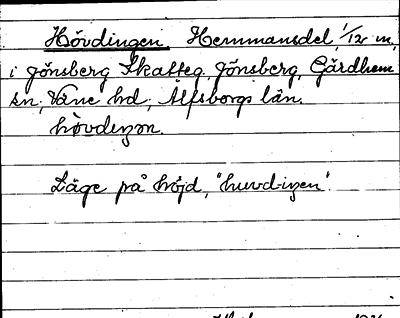 Hövdingen Hemmansdel 1/12 m,
i Jönsberg Skatteg. Jönsberg, Gärdhem
sn, Väne hd, Älfsborgs län.
hövdingən.
Läge på höjd, "huvd-ingen".